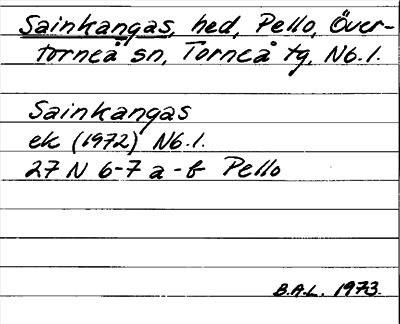 Sainkangas, hed, Pello, Över-
torneå sn, Torneå tg, Nb.l.
Sainkangas
ek (1972) Nb.l.
27 N 6-7 a-b Pello
B.A.L. 1973.